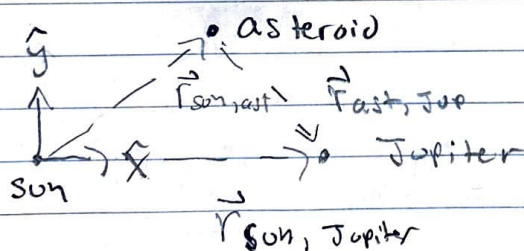 asteroid
ŷ
r⃗ sun,ast r⃗ Ast, Jup
x̂ Jupiter
sun
r⃗ sun, Jupiter